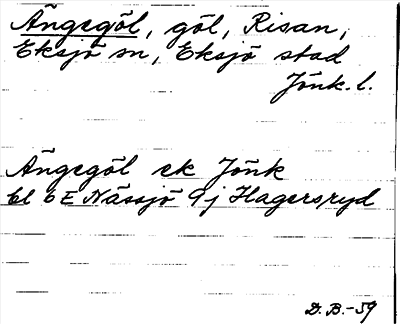 Ängegöl, göl, Risan,
Eksjö sn, Eksjö stad
Jönk. l.
Ängegöl ek Jönk
bl 6E Nässjö 9j Hagersryd
D. B. -59